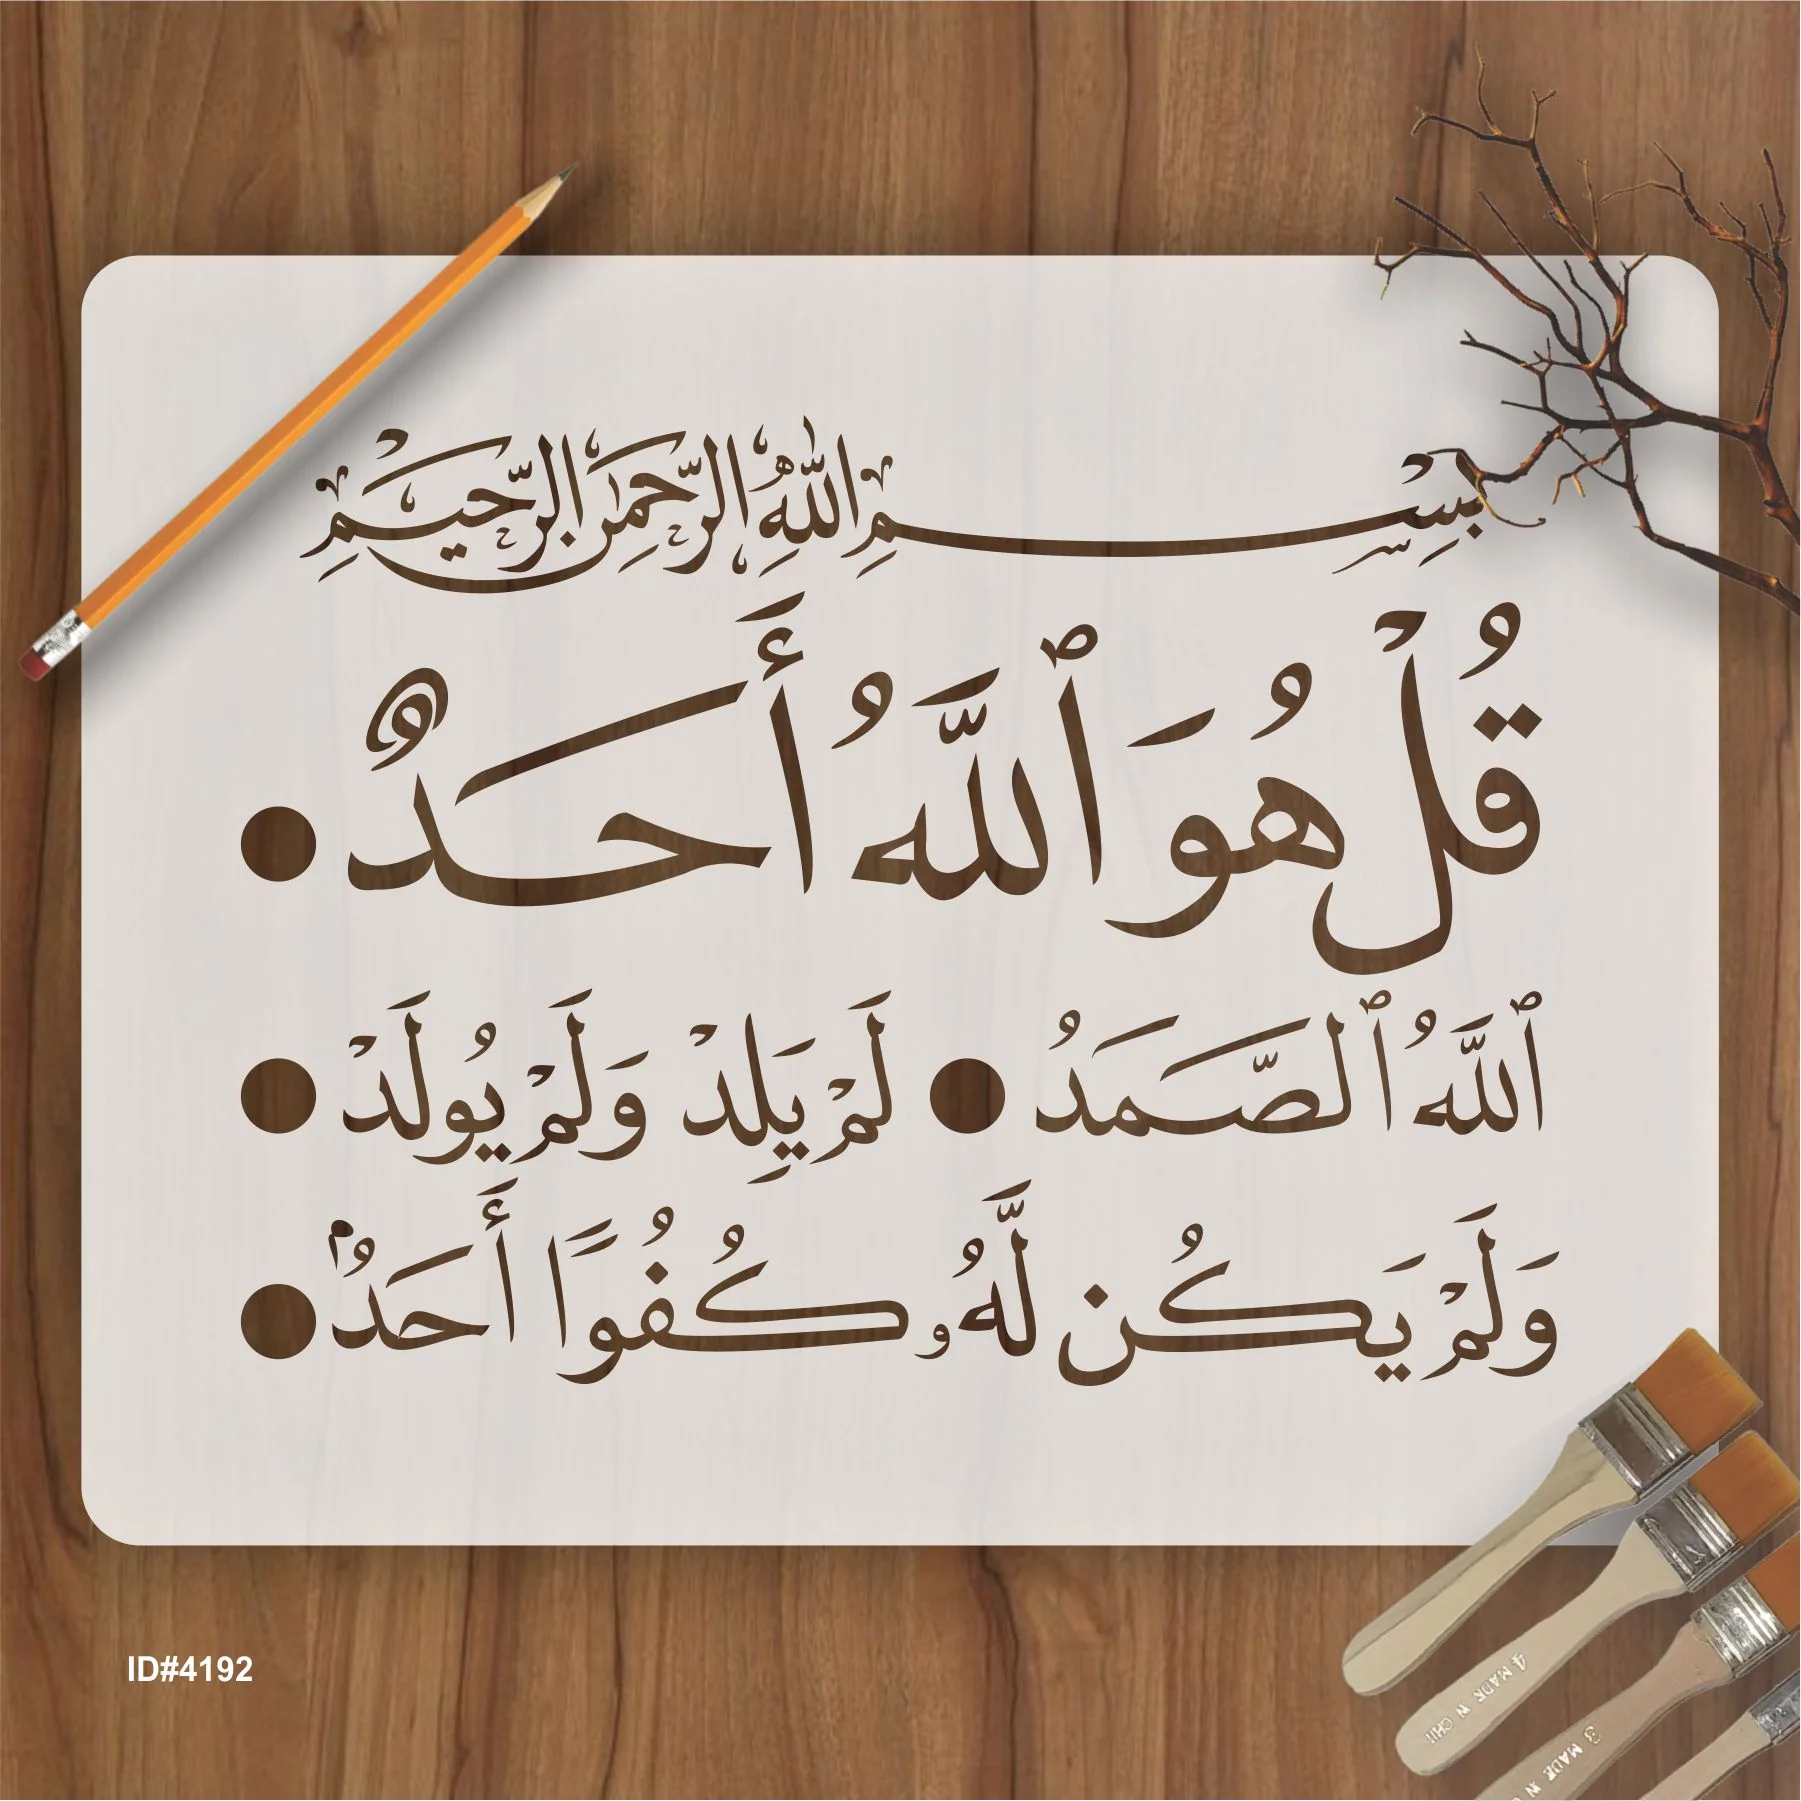 بِسْمِ اللَّهِ الرَّحْمَٰنِ الرَّحِيمِ
قُلْ هُوَ ٱللَّهُ أَحَدٌ ●
ٱللَّهُ ٱلصَّمَدُ ● لَمْ يَلِدْ وَلَمْ يُولَدْ ●
وَلَمْ يَكُن لَّهُۥ كُفُوًا أَحَدٌۢ ●
ID#4192
4 MADE IN CHI
3 MADE IN C